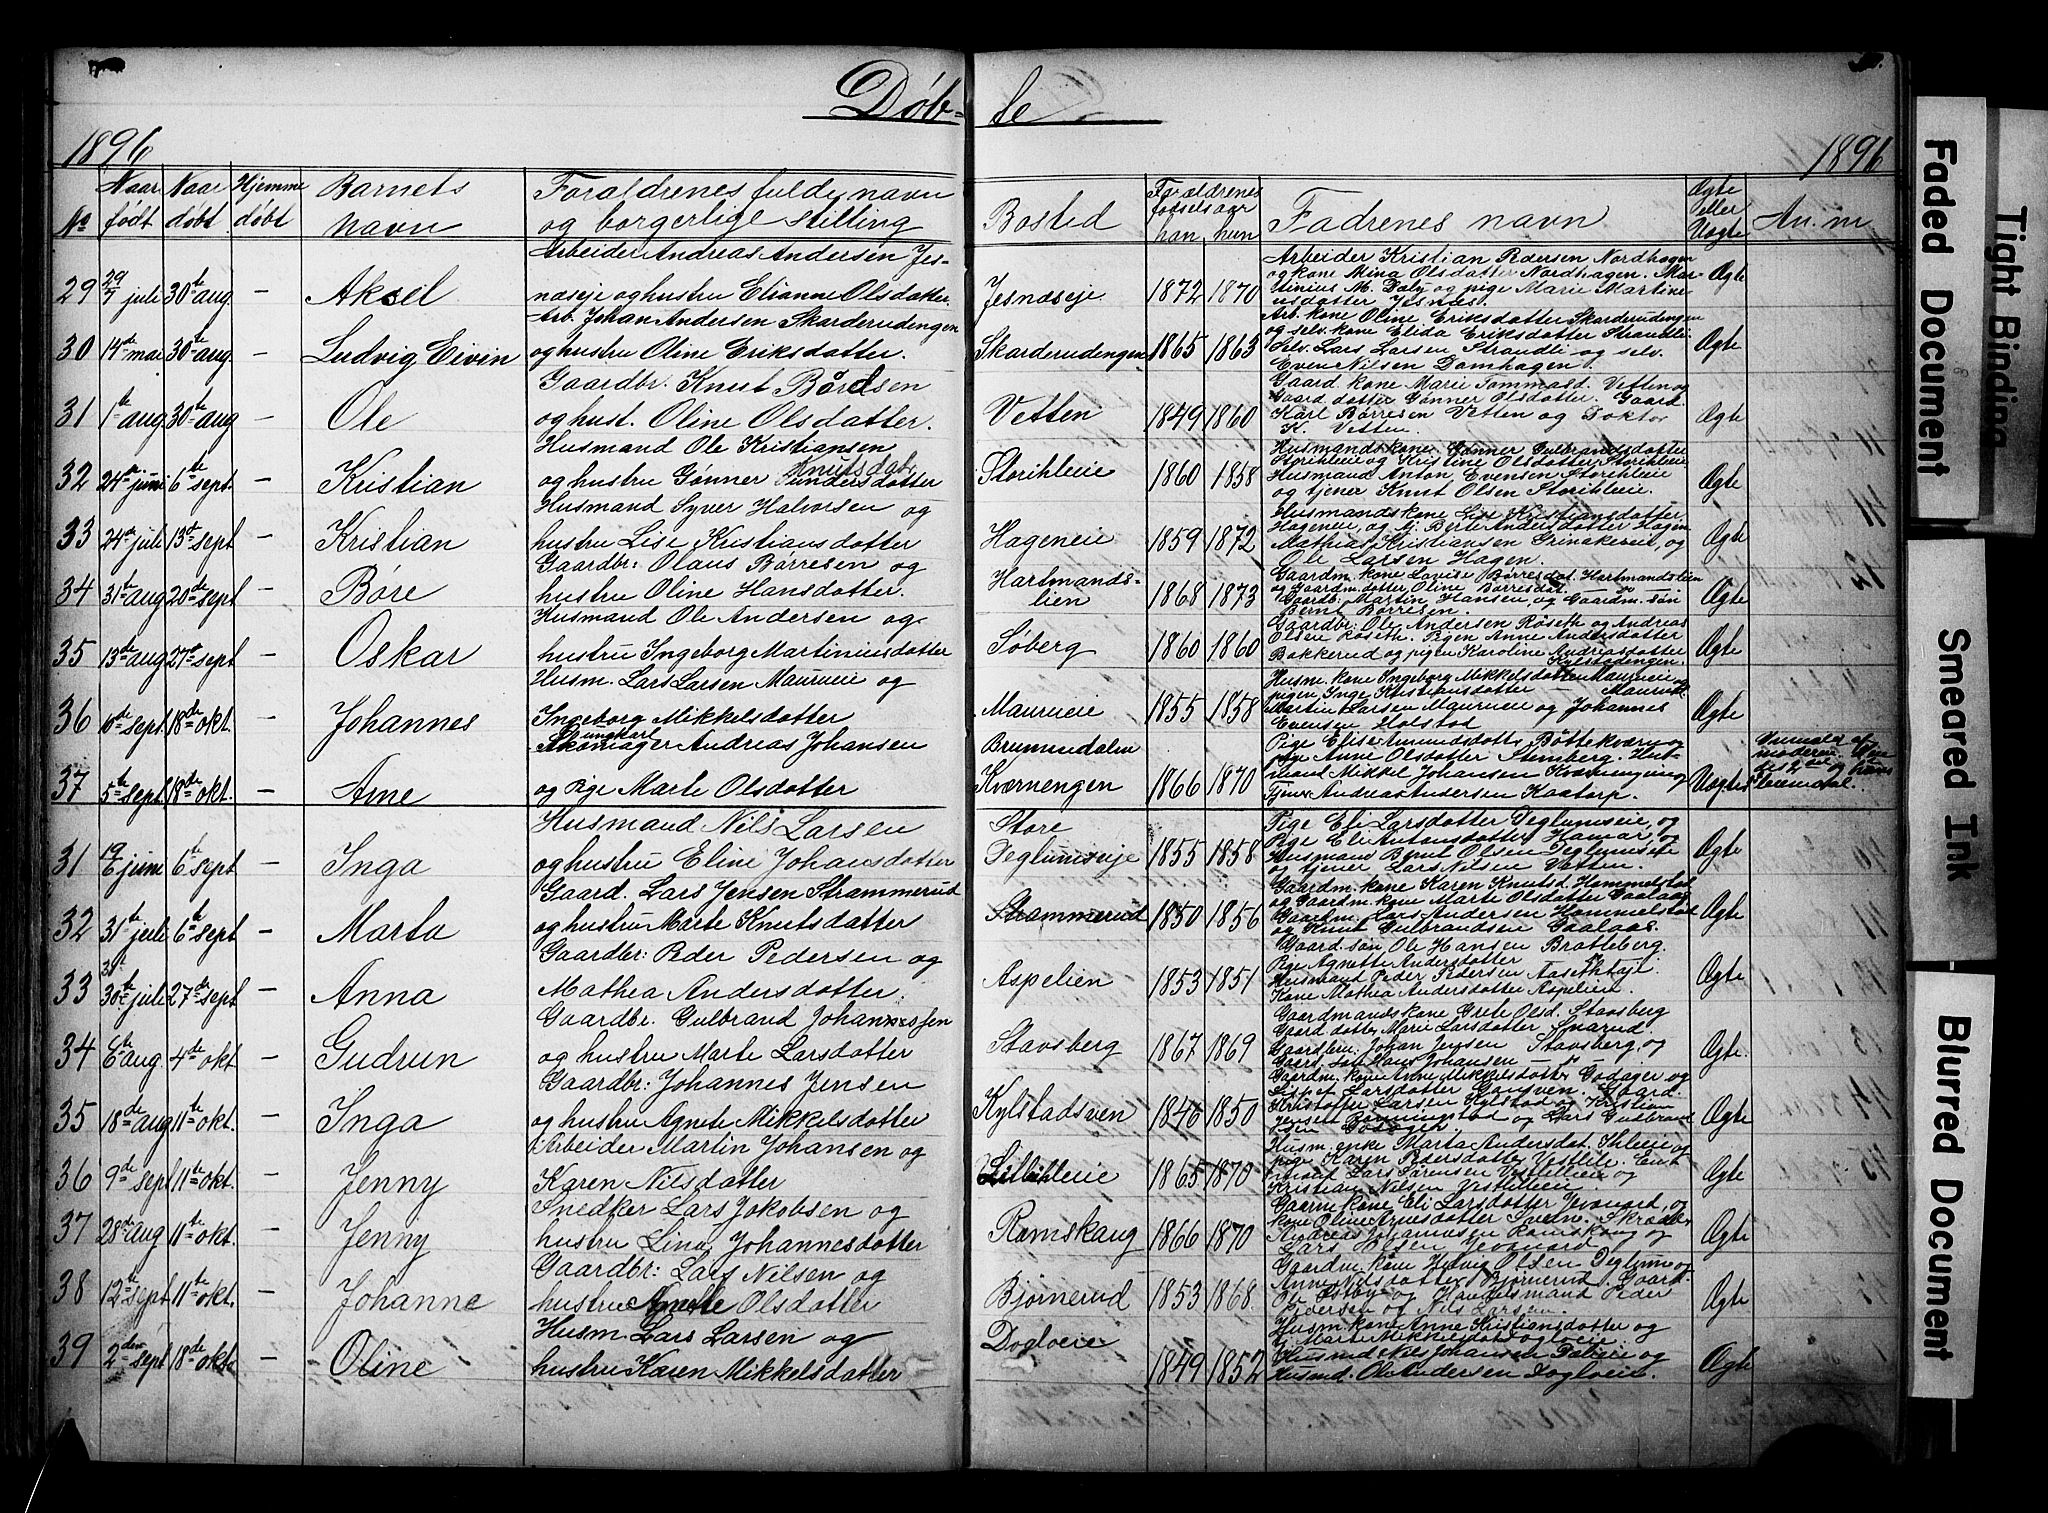 Døb-
te
1896
1896
No
Naar født
Naar døbt
Hjemme døbt
Barnets navn
Forældrenes fulde navn og borgerlige stilling
Bosted
Forældrenes fødselsaar
han hun
Fadrenes navn
Ægte eller Uægte
An. m
Arbeider Andreas Andersen Jes-
29 29/7 juli 30te aug. — Aksel næseje og hustru Elianne Olsdatter. Jesnæseje 1872 1870 Ægte
Arbeider Kristian Pedersen Nordhagen
og kone Mina Olsdatter Nordhagen. Mar-
tinius M. Dæly og pige Marie Martine
usdatter Jesnæs.
Arb. Johan Andersen Skarderudengen
30 14de mai 30te aug — Ludvig Eivin og hustru Oline Eriksdatter. Skarderudengen 1865 1863 Ægte
Arb. kone Oline Eriksdatter Skarderudengen
og selv. kone Elida Eriksdatter Strandli
Selv. Lars Larsen Strandli og selv.
Even Nilsen Domhagen.
Gaardbr. Knut Børdsen
31 1te aug 30te aug — Ole og hust. Oline Olsdatter. Vetten 1849 1860 Ægte
Gaard. kone Marie Tommasd. Vetten og
Gaard datter Gønner Olsdatter. Gaard.
Karl Børresen Vetten og Doktor
K. Vetten.
Husmand Ole Kristiansen
Knutsdatr
32 24de juni 6te sept. — Kristian og hustru Gønner Gundersdatter Storihleie 1860 1858 Ægte
Husmandskone Gønner Gulbrandsdatter
Storihleie og Kristine Olsdatter Storihleie
Husmand Anton Evensen Storihleie
og tjener Knut Olsen Storihleie.
Husmand Syver Halvorsen og
33 24de juli 13de sept — Kristian hustru Lise Kristiansdatter Hageneie 1859 1872 Ægte
Husmandskone Lise Kristiansdatter
Hageneie, og tj. Berte Andersdatter Hagen
Mathias Kristiansen Grinakereie, og
Ole Larsen Hagen.
Gaardbr: Olaus Børresen og
34 31te aug 20de sept — Børe hustru Oline Hansdatter. Hartmands-
lien 1868 1873 Ægte
Gaardm. kone Lovise Børresdat. Hartmandslien
og Gaardm. datter Oline Børresdat.
Gaardb: Martin Hansen, og Gaardm. søn
Bernt Børresen.
Husmand Ole Andersen og
35 13de aug 27de sept — Oskar hustru Ingeborg Martiniusdatter Søberg 1860 1860 Ægte
Gaardbr: Ole Andersen Røseth og Andreas
Olsen Røseth. Pigen Anne Andersdatter
Bakkerud og pigen Karoline Andreasdatter
Kylstadengen.
Husm. Lars Larsen Maurueie og
36 10de sept. 18de okt. — Johannes Ingeborg Mikkelsdatter Maurueie 1855 1858 Ægte
Husm. kone Ingeborg Mikkelsdatter Maurueie og
pigen Inge Kristiansdatter — Maurueie
Martin Larsen Maurueie og Johannes
Evensen Molstad
ungkarl
Skomager Andreas Johansen
37 5te sept 18de okt. — Arne og Pige Marte Olsdatter Brumundalen
Kværnengen 1866 1870 Uægte
Pige Elise Amundsdatts. Bøttekværn og
pige Anne Olsdatter Stemberg. Hus-
mand Mikkel Johansen Kværnengen og
Tjener Andreas Andersen Kaatorp.
Anmeldt af
moderen
leiemaal.
Husmand Nils Larsen
31 19/6 juni 6te sept — Inga og hustru Eline Johansdatter Store
Deglumseje 1855 1858 Ægte
Pige Eli Larsdatter Deglumseie, og
Pige Eli Antonsdatter Hamar, og
Husmand Bernt Olsen Deglumseie
og tjener Lars Nilsen Vetten.
Gaard. Lars Jensen Strammerud
32 31te juli 6te sept — Marta og hustru Marte Knutsdatter Strammerud 1850 1856 Ægte
Gaardm. kone Karen Knutsd. Hammelstad
og Gaardm. kone Marte Olsdatter Gaalaas
Gaardm. Lars Andersen Hommelstad
og Knut Gulbrandsen Gaalaas.
Gaardbr: Peder Pedersen og
33 30te juli 27de sept — Anna Mathea Andersdatter. Aspelien 1853 1851 Ægte
Gaard. søn Ole Hansen Bratteberg.
Pige Agnette Andersdatter — " —
Husmand Peder Pedersen Aasethtøje.
Kone Mathea Andersdatter Aspeleie.
Gaardbr. Gulbrand Johannessen
34 6te aug. 4de okt — Gudrun og hustru Marte Larsdatter Stavsberg 1867 1869 Ægte.
Gaardmandskone Grete Olsd. Stavsberg
Gaard datter Marie Larsdatter Snarud.
Gaardbrn. Johan Jensen Stavsberg, og
Gaard. søn Hans Johansen — " —
Gaardbr: Johannes Jensen
35 18de aug 11te okt. — Inga og hustru Agnete Mikkelsdatter Kylstadsven 1846 1850 Ægte
Gaardm. kone Anne Mikkelsdatter Godager og
Lisbet Larsdatter Gausven. Gaard.
Kristoffer Larsen Kylstad og Kristian
Jensen Børningstad og Lars Gulbrand
sen Godager.
Arbeider Martin Johansen og
36 9de sept 11te okt. — Jenny Karen Nilsdatter Lilleihleie 1865 1870 Ægte
Husm. enke Marta Andersdat. Ihleeie og
pige Karen Pedersdatter Vestlete. Enk
mand Lars Sørensen Vestleteie og
Kristian Nilsen Vestleteie
Snedker Lars Jakobsen og
37 28de aug 11te okt. — Jenny hustru Lina Johannesdatter Romskaug 1866 1870 Ægte
Gaarm. kone Eli Larsdatter Jevanord, og
kone Oline Arnesdatter Svedn. Skræder
Andreas Johannesen Romskaug og
Lars Olsen Jevanord.
Gaardbr: Lars Nilsen og
38 12te sept 11te okt. — Johanne hustru Anette Olsdatter Bjørnerud 1853 1868. Ægte
Gaardm. kone Hedvig Olsen Deglum og
Anne Nilsdatter Bjørnerud. Gaard-
Ole Østby og Handelsmand Peder
Pedersen og Nils Larsen.
Husm. Lars Larsen og
39 2den sept 18de okto — Oline hustru Karen Mikkelsdatter Dogloeie 1849 1852 Ægte
Husm. kone Anne Kristiansdatter og
tj. Marte Mikkelsdat Dogloeie.
Husmd Nils Johansen Dæleie og
Husmd. Ole Andersen Dogloeie.
Faded Document
Tight Binding
Smeared Ink
Blurred Document